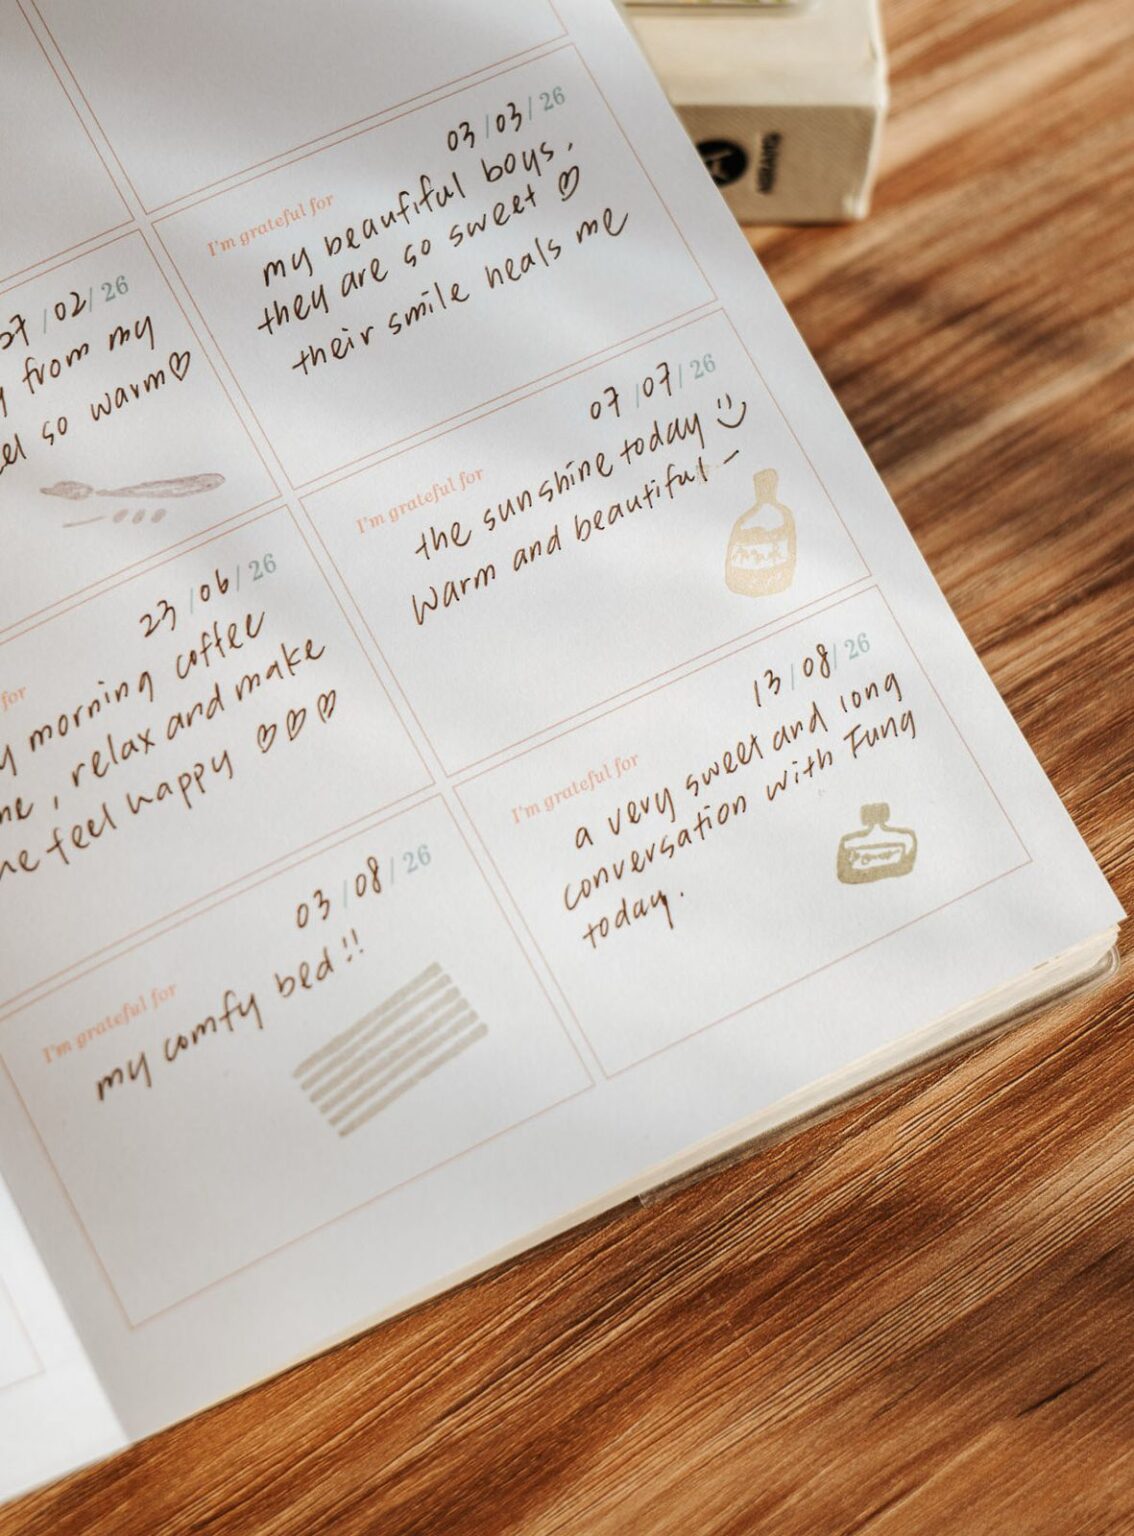 27/02/26
from my
so warm♡
23/06/26
morning coffee
, relax and make
feel happy ♡♡♡
03/08/26
I'm grateful for
my comfy bed!!
03/03/26
I'm grateful for
my beautiful boys,
they are so sweet ♡
their smile heals me
07/07/26
I'm grateful for
the sunshine today
warm and beautiful~
13/08/26
I'm grateful for
a very sweet and long
conversation with Fung
today.